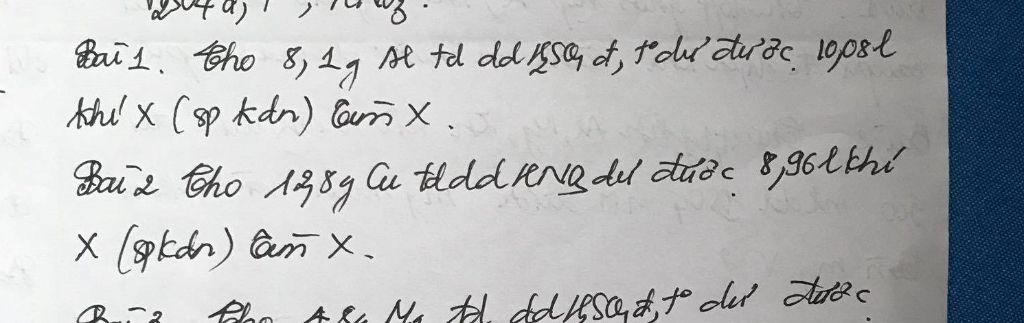 Bài 1. Cho 8,1g Al td dd H₂SO₄ đ, t° dư được 10,08 l
khí X (sp kdn) Tìm X.
Bài 2 Cho 12,8g Cu td dd HNO₃ dư được 8,96 l khí
X (spkdn) Tìm X.
Cho Mg td dd H₂SO₄ đ, t° dư được